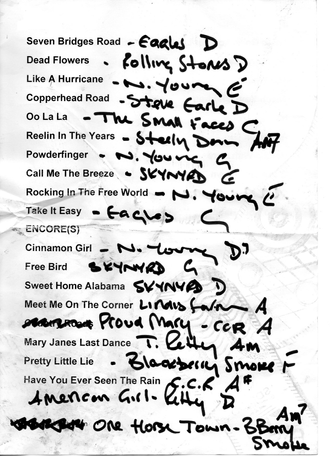 Seven Bridges Road - Eagles D
Dead Flowers - Rolling Stones D
Like A Hurricane - N. Young E
Copperhead Road - Steve Earle D
Oo La La - The Small Faces C
Reelin In The Years - Steely Dann Am7
Powderfinger - N. Young G
Call Me The Breeze - SKYNYRD E
Rocking In The Free World - N. Young E
Take It Easy - Eagles G
ENCORE(S)
Cinnamon Girl - N. Young D7
Free Bird SKYNYRD G
Sweet Home Alabama SKYNYRD D
Meet Me On The Corner Lindisfarn A
Proud Mary - CCR A
Mary Janes Last Dance T. Petty AM
Pretty Little Lie - Blackberry Smoke F
Have You Ever Seen The Rain C.C.R A#
American Girl - Petty D
One Horse Town - BBerry Am7
Smoke